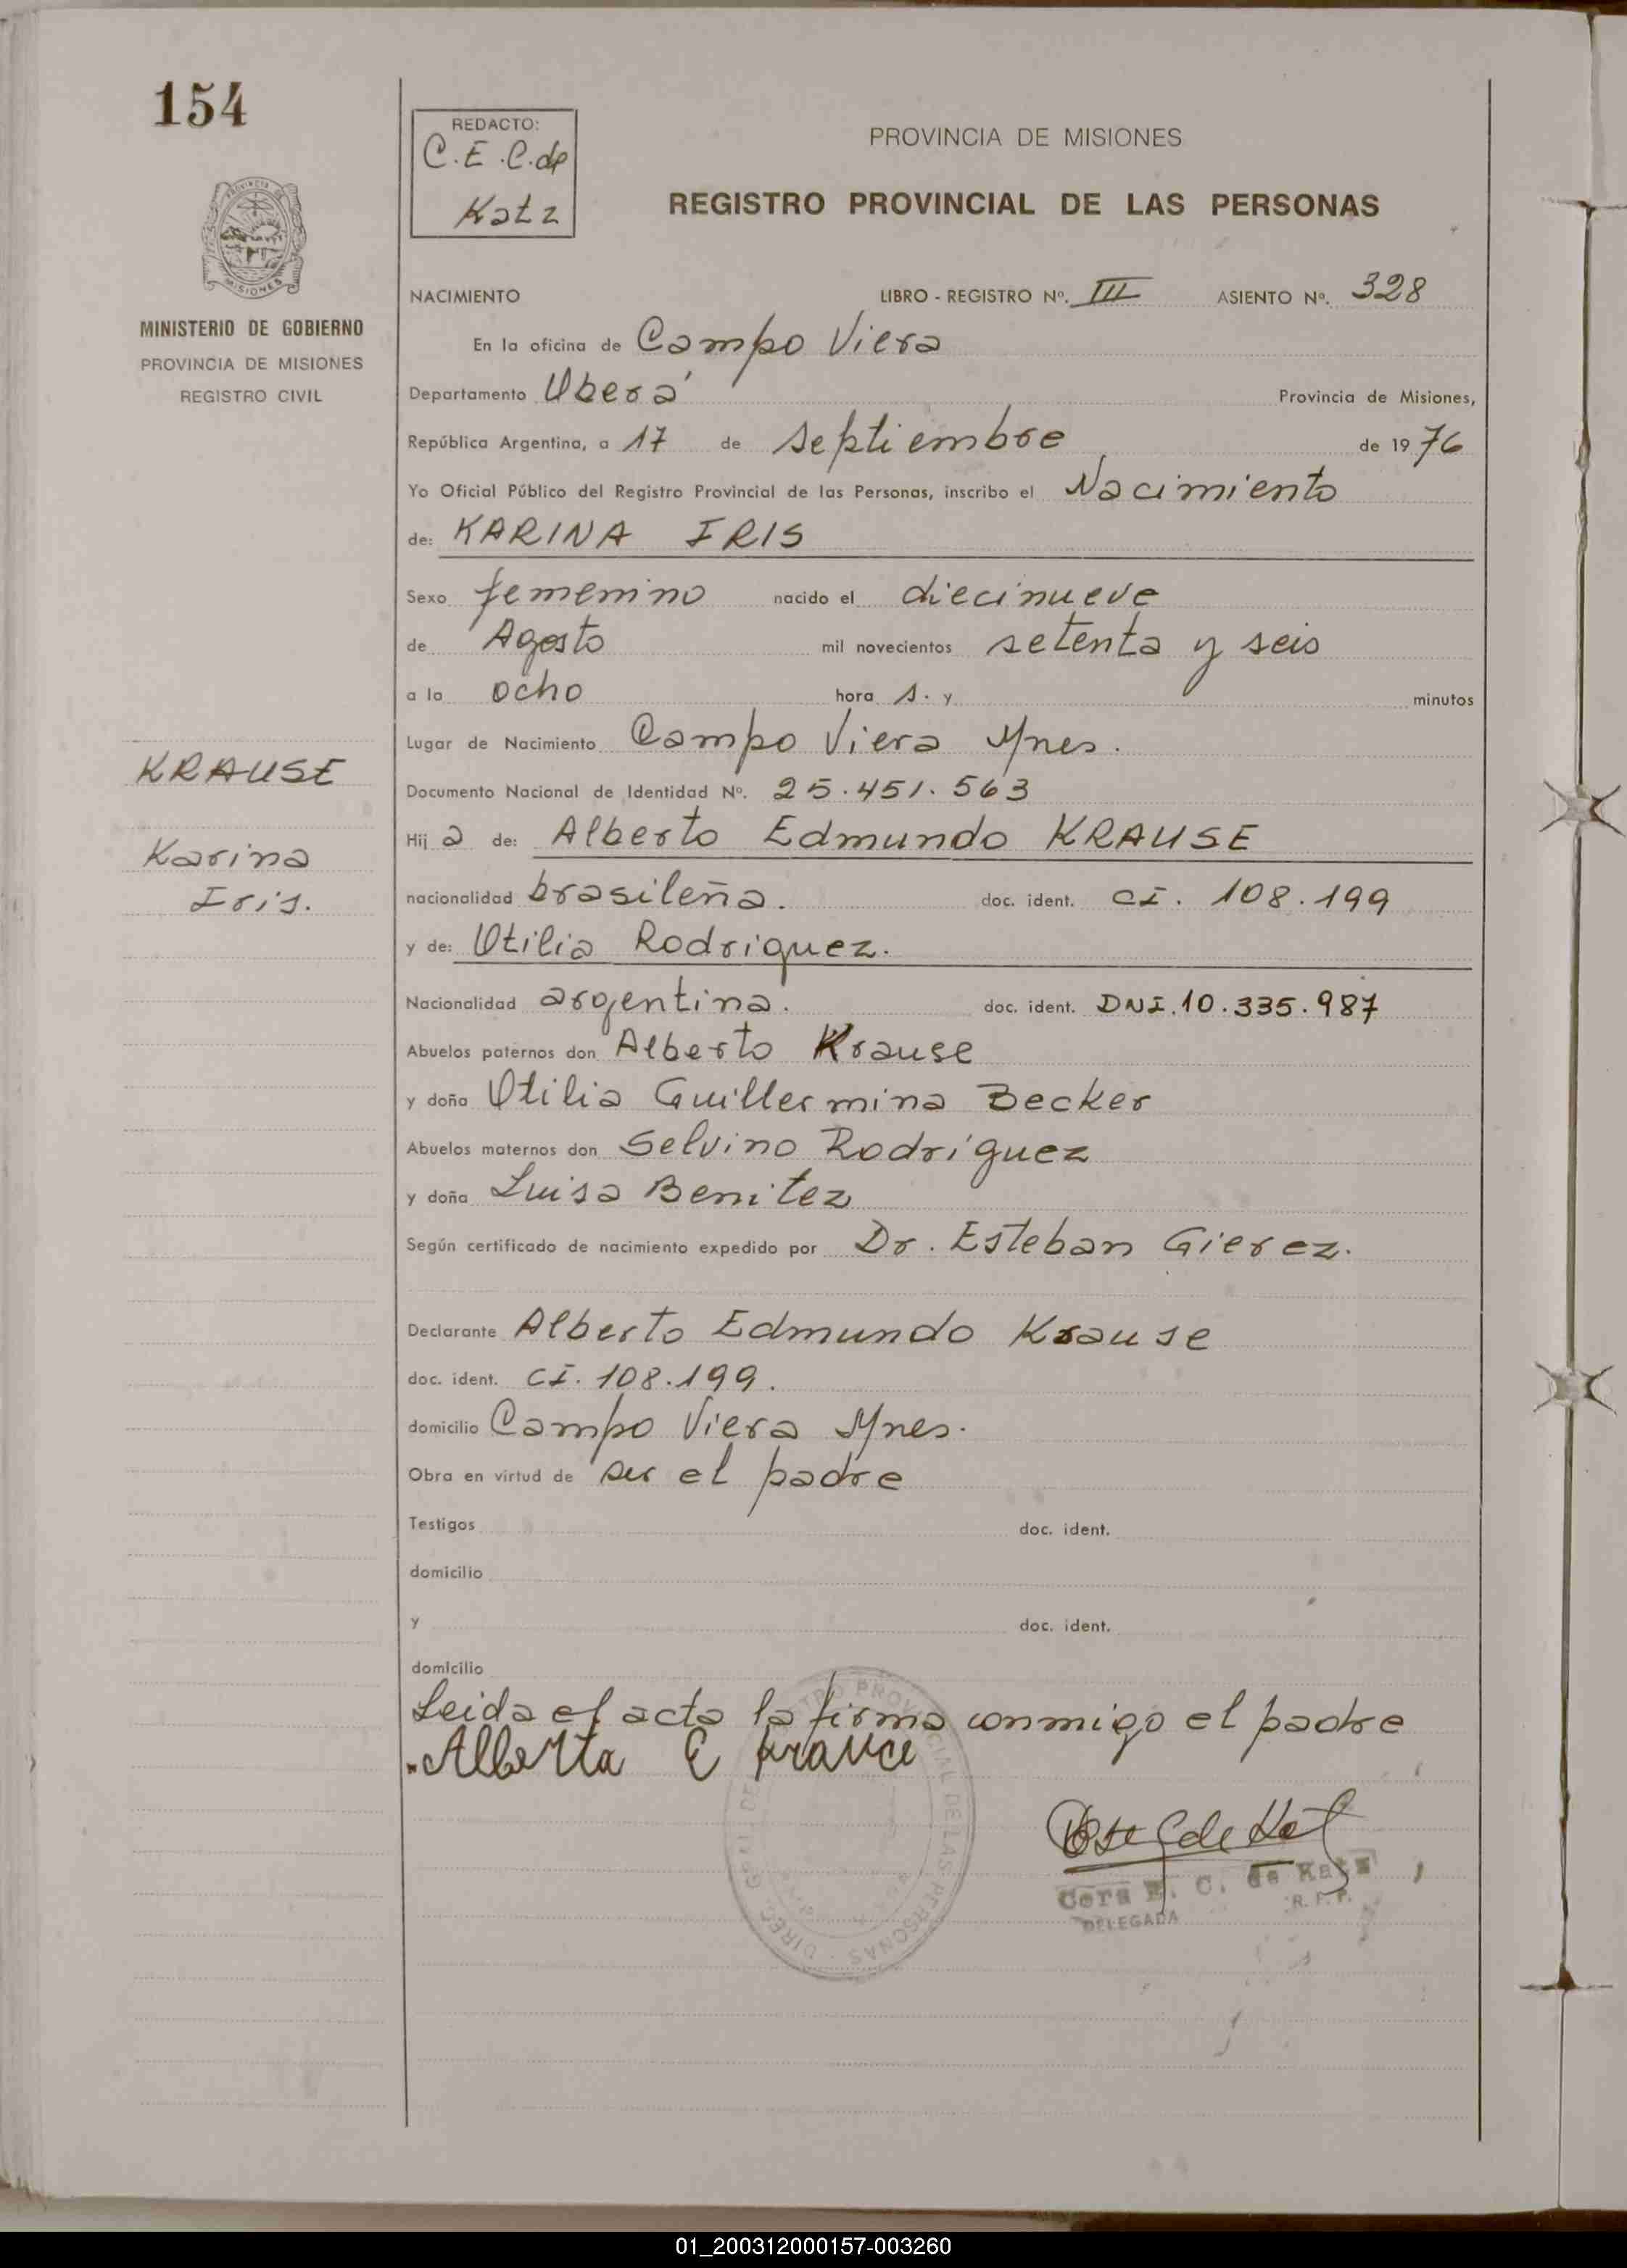 154
MINISTERIO DE GOBIERNO
PROVINCIA DE MISIONES
REGISTRO CIVIL
KRAUSE
Karina
Iris.
REDACTO:
C.E.C. de
Katz
PROVINCIA DE MISIONES
REGISTRO PROVINCIAL DE LAS PERSONAS
NACIMIENTO LIBRO - REGISTRO Nº. III ASIENTO Nº. 328
En la oficina de Campo Viera
Departamento Oberá Provincia de Misiones,
República Argentina, a 17 de septiembre de 1976
Yo Oficial Público del Registro Provincial de las Personas, inscribo el Nacimiento
de: KARINA IRIS
Sexo femenino nacido el diecinueve
de Agosto mil novecientos setenta y seis
a la ocho hora s. y minutos
Lugar de Nacimiento Campo Viera Mnes.
Documento Nacional de Identidad Nº. 25.451.563
Hij a de: Alberto Edmundo KRAUSE
nacionalidad brasileña. doc. ident. CI. 108.199
y de: Otilia Rodriguez.
Nacionalidad argentina. doc. ident. DNI. 10.335.987
Abuelos paternos don Alberto Krause
y doña Otilia Guillermina Becker
Abuelos maternos don Selvino Rodríguez
y doña Luisa Benitez
Según certificado de nacimiento expedido por Dr. Esteban Gierez.
Declarante Alberto Edmundo Krause
doc. ident. CI. 108.199.
domicilio Campo Viera Mnes.
Obra en virtud de ser el padre
Testigos doc. ident.
domicilio
y doc. ident.
domicilio
Leida el acta la firma conmigo el padre
Alberta E
Cora E. C. de Katz
DELEGADA R.P.P.
01_200312000157-003260